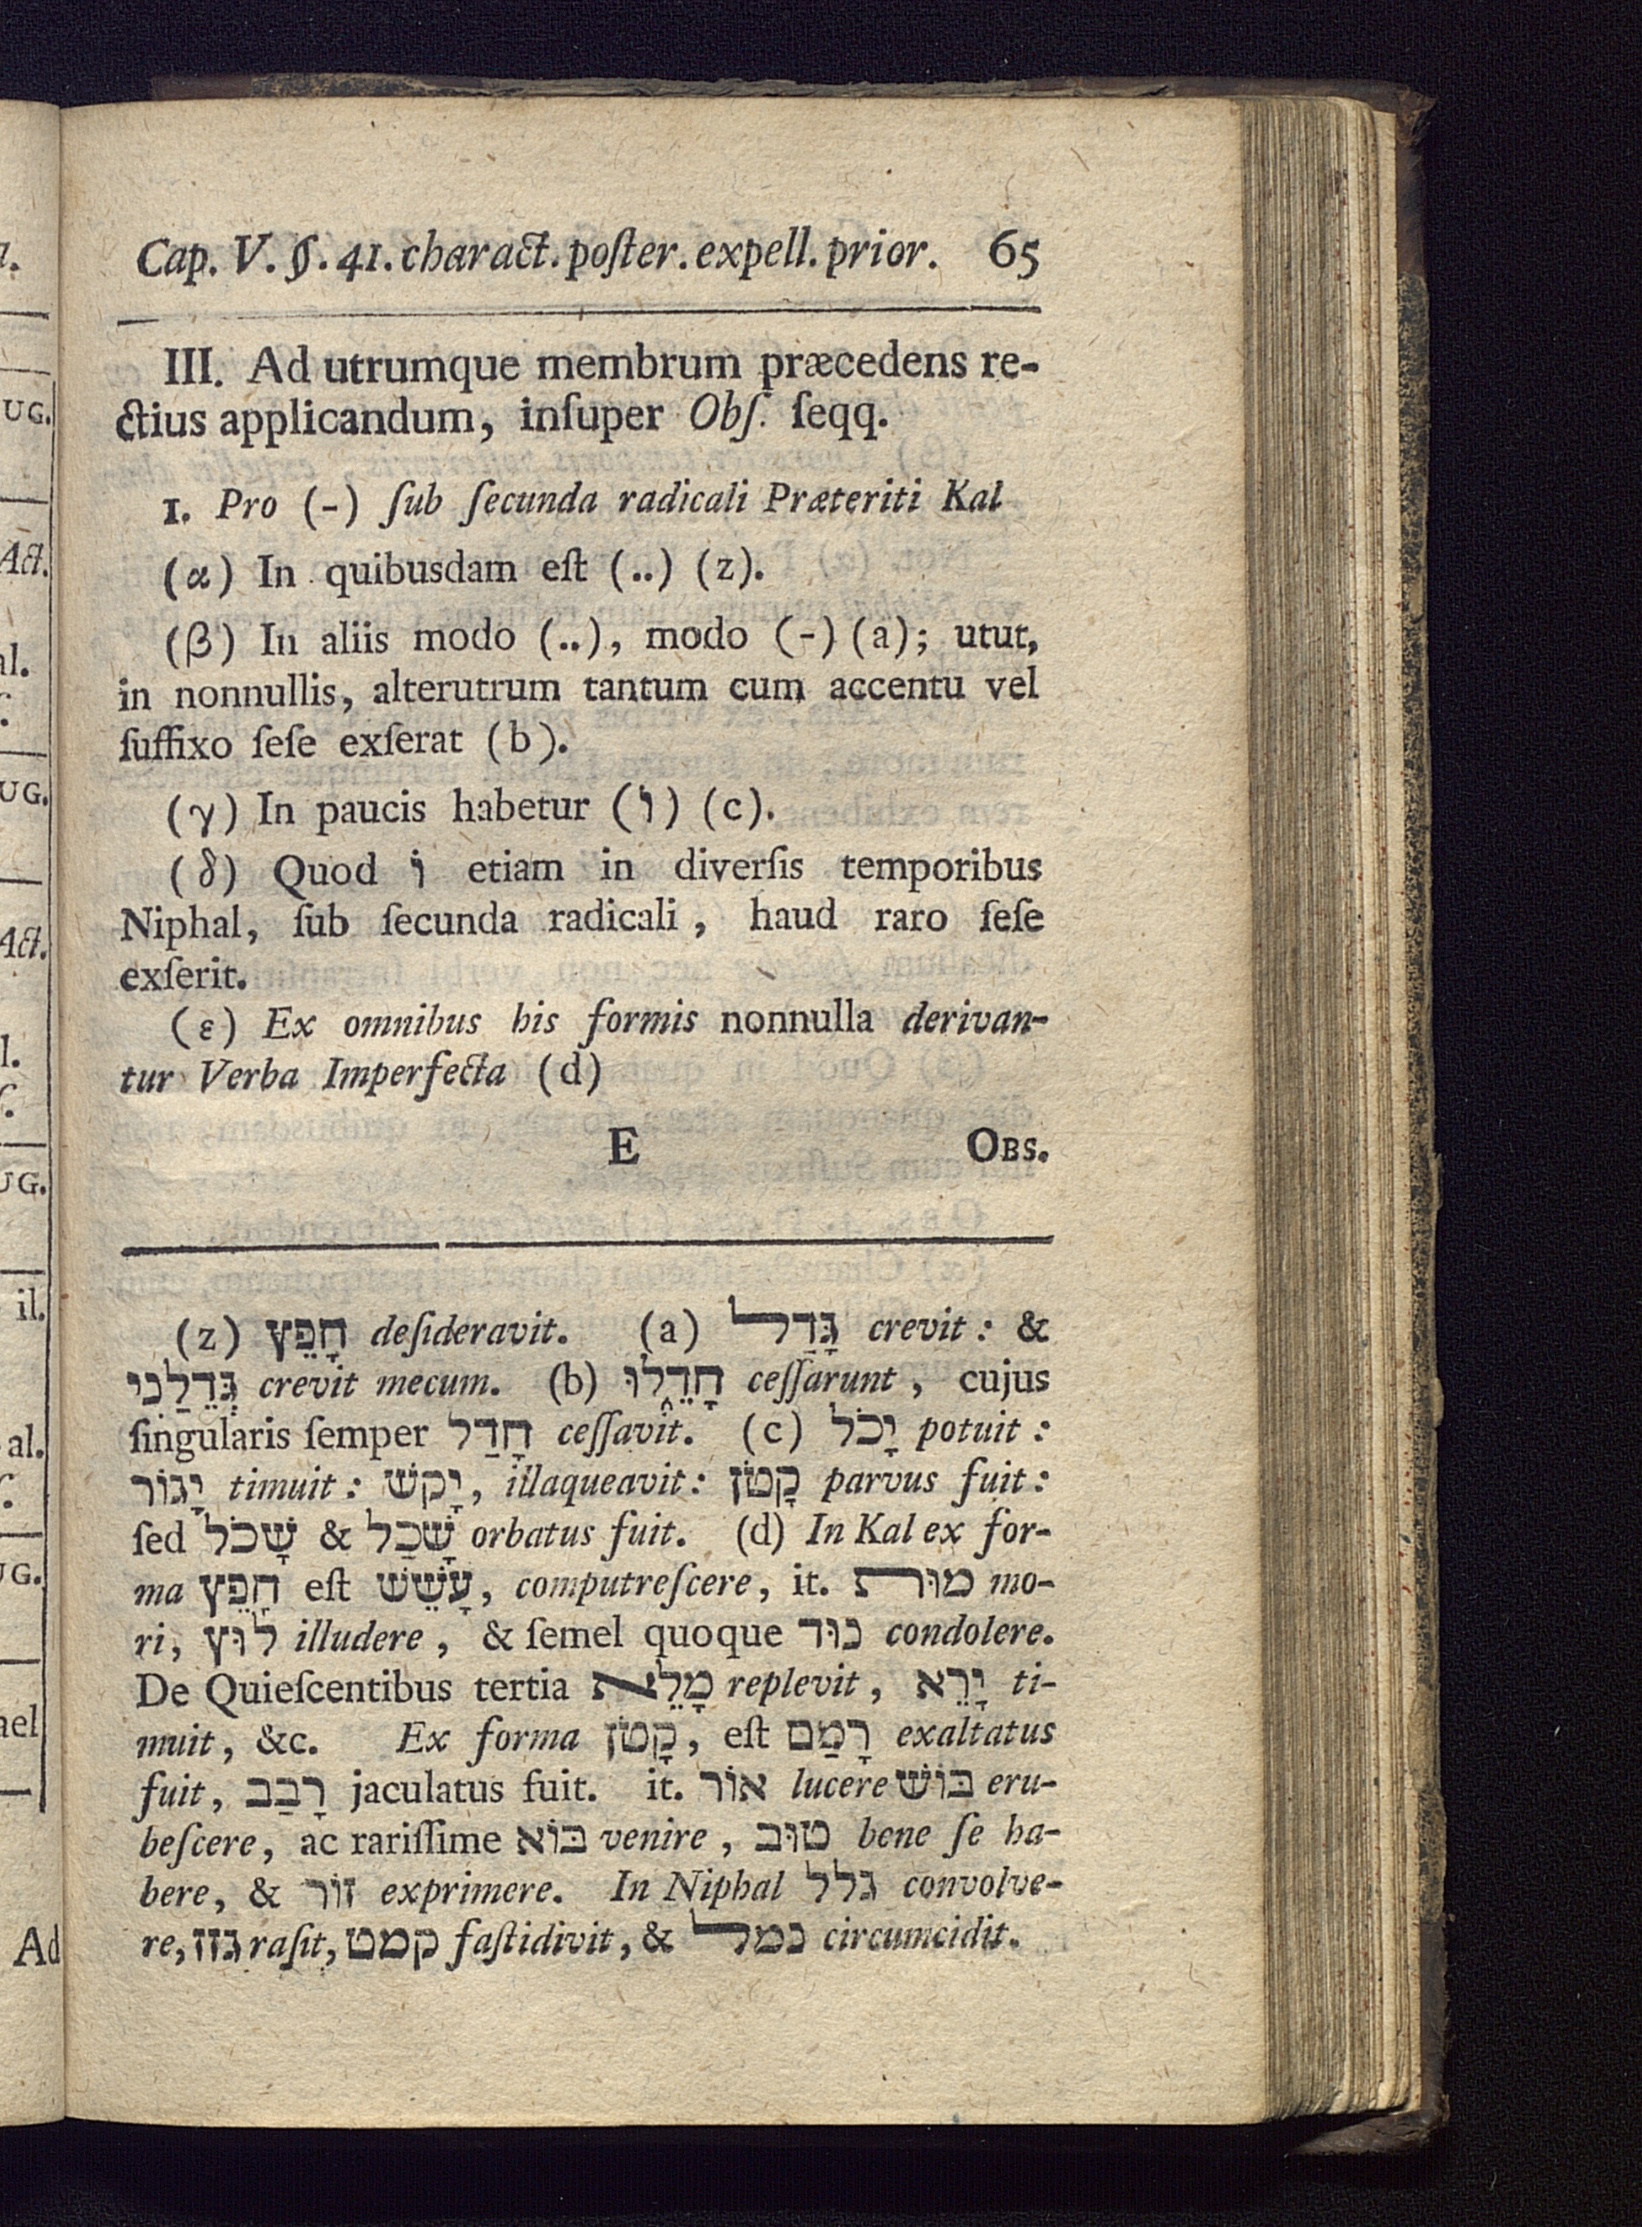 Cap. V. §. 41. charact. poſter. expell. prior. 65
III. Ad utrumque membrum præcedens re-
ctius applicandum, inſuper Obſ. ſeqq.
1. Pro (-) ſub ſecunda radicali Præteriti Kal
(α) In quibusdam eſt (..) (z).
(β) In aliis modo (..), modo (-) (a); utut,
in nonnullis, alterutrum tantum cum accentu vel
ſuffixo ſeſe exſerat (b).
(γ) In paucis habetur (וֹ) (c).
(δ) Quod וֹ etiam in diverſis temporibus
Niphal, ſub ſecunda radicali, haud raro ſeſe
exſerit.
(ε) Ex omnibus his formis nonnulla derivan-
tur Verba Imperfecta (d)
E OBS.
(z) חָפֵץ deſideravit. (a) גָּדַל crevit: &
גְּדֵלַנִי crevit mecum. (b) חָדֵלּוּ ceſſarunt, cujus
ſingularis ſemper חָדַל ceſſavit. (c) יָכֹל potuit:
יָגוֹר timuit: יָקֹשׁ, illaqueavit: קָטֹן parvus fuit:
ſed שָׁכֹל & שָׁכַל orbatus fuit. (d) In Kal ex for-
ma חָפֵץ eſt עָשֵׁשׁ, computreſcere, it. מוּת mo-
ri, לוּץ illudere, & ſemel quoque נוּד condolere.
De Quieſcentibus tertia מָלֵא replevit, יָרֵא ti-
muit, &c. Ex forma קָטֹן, eſt רָמַם exaltatus
fuit, רָבַב jaculatus fuit. it. אוֹר lucere בּוֹשׁ eru-
beſcere, ac rariſſime בּוֹא venire, טוּב bene ſe ha-
bere, & זוֹר exprimere. In Niphal גלל convolve-
re, גזז raſit, קמט faſtidivit, & נמל circumcidit.
al.
UG.
Act.
al.
UG.
Act.
l.
UG.
il.
al.
UG.
ael
Ad